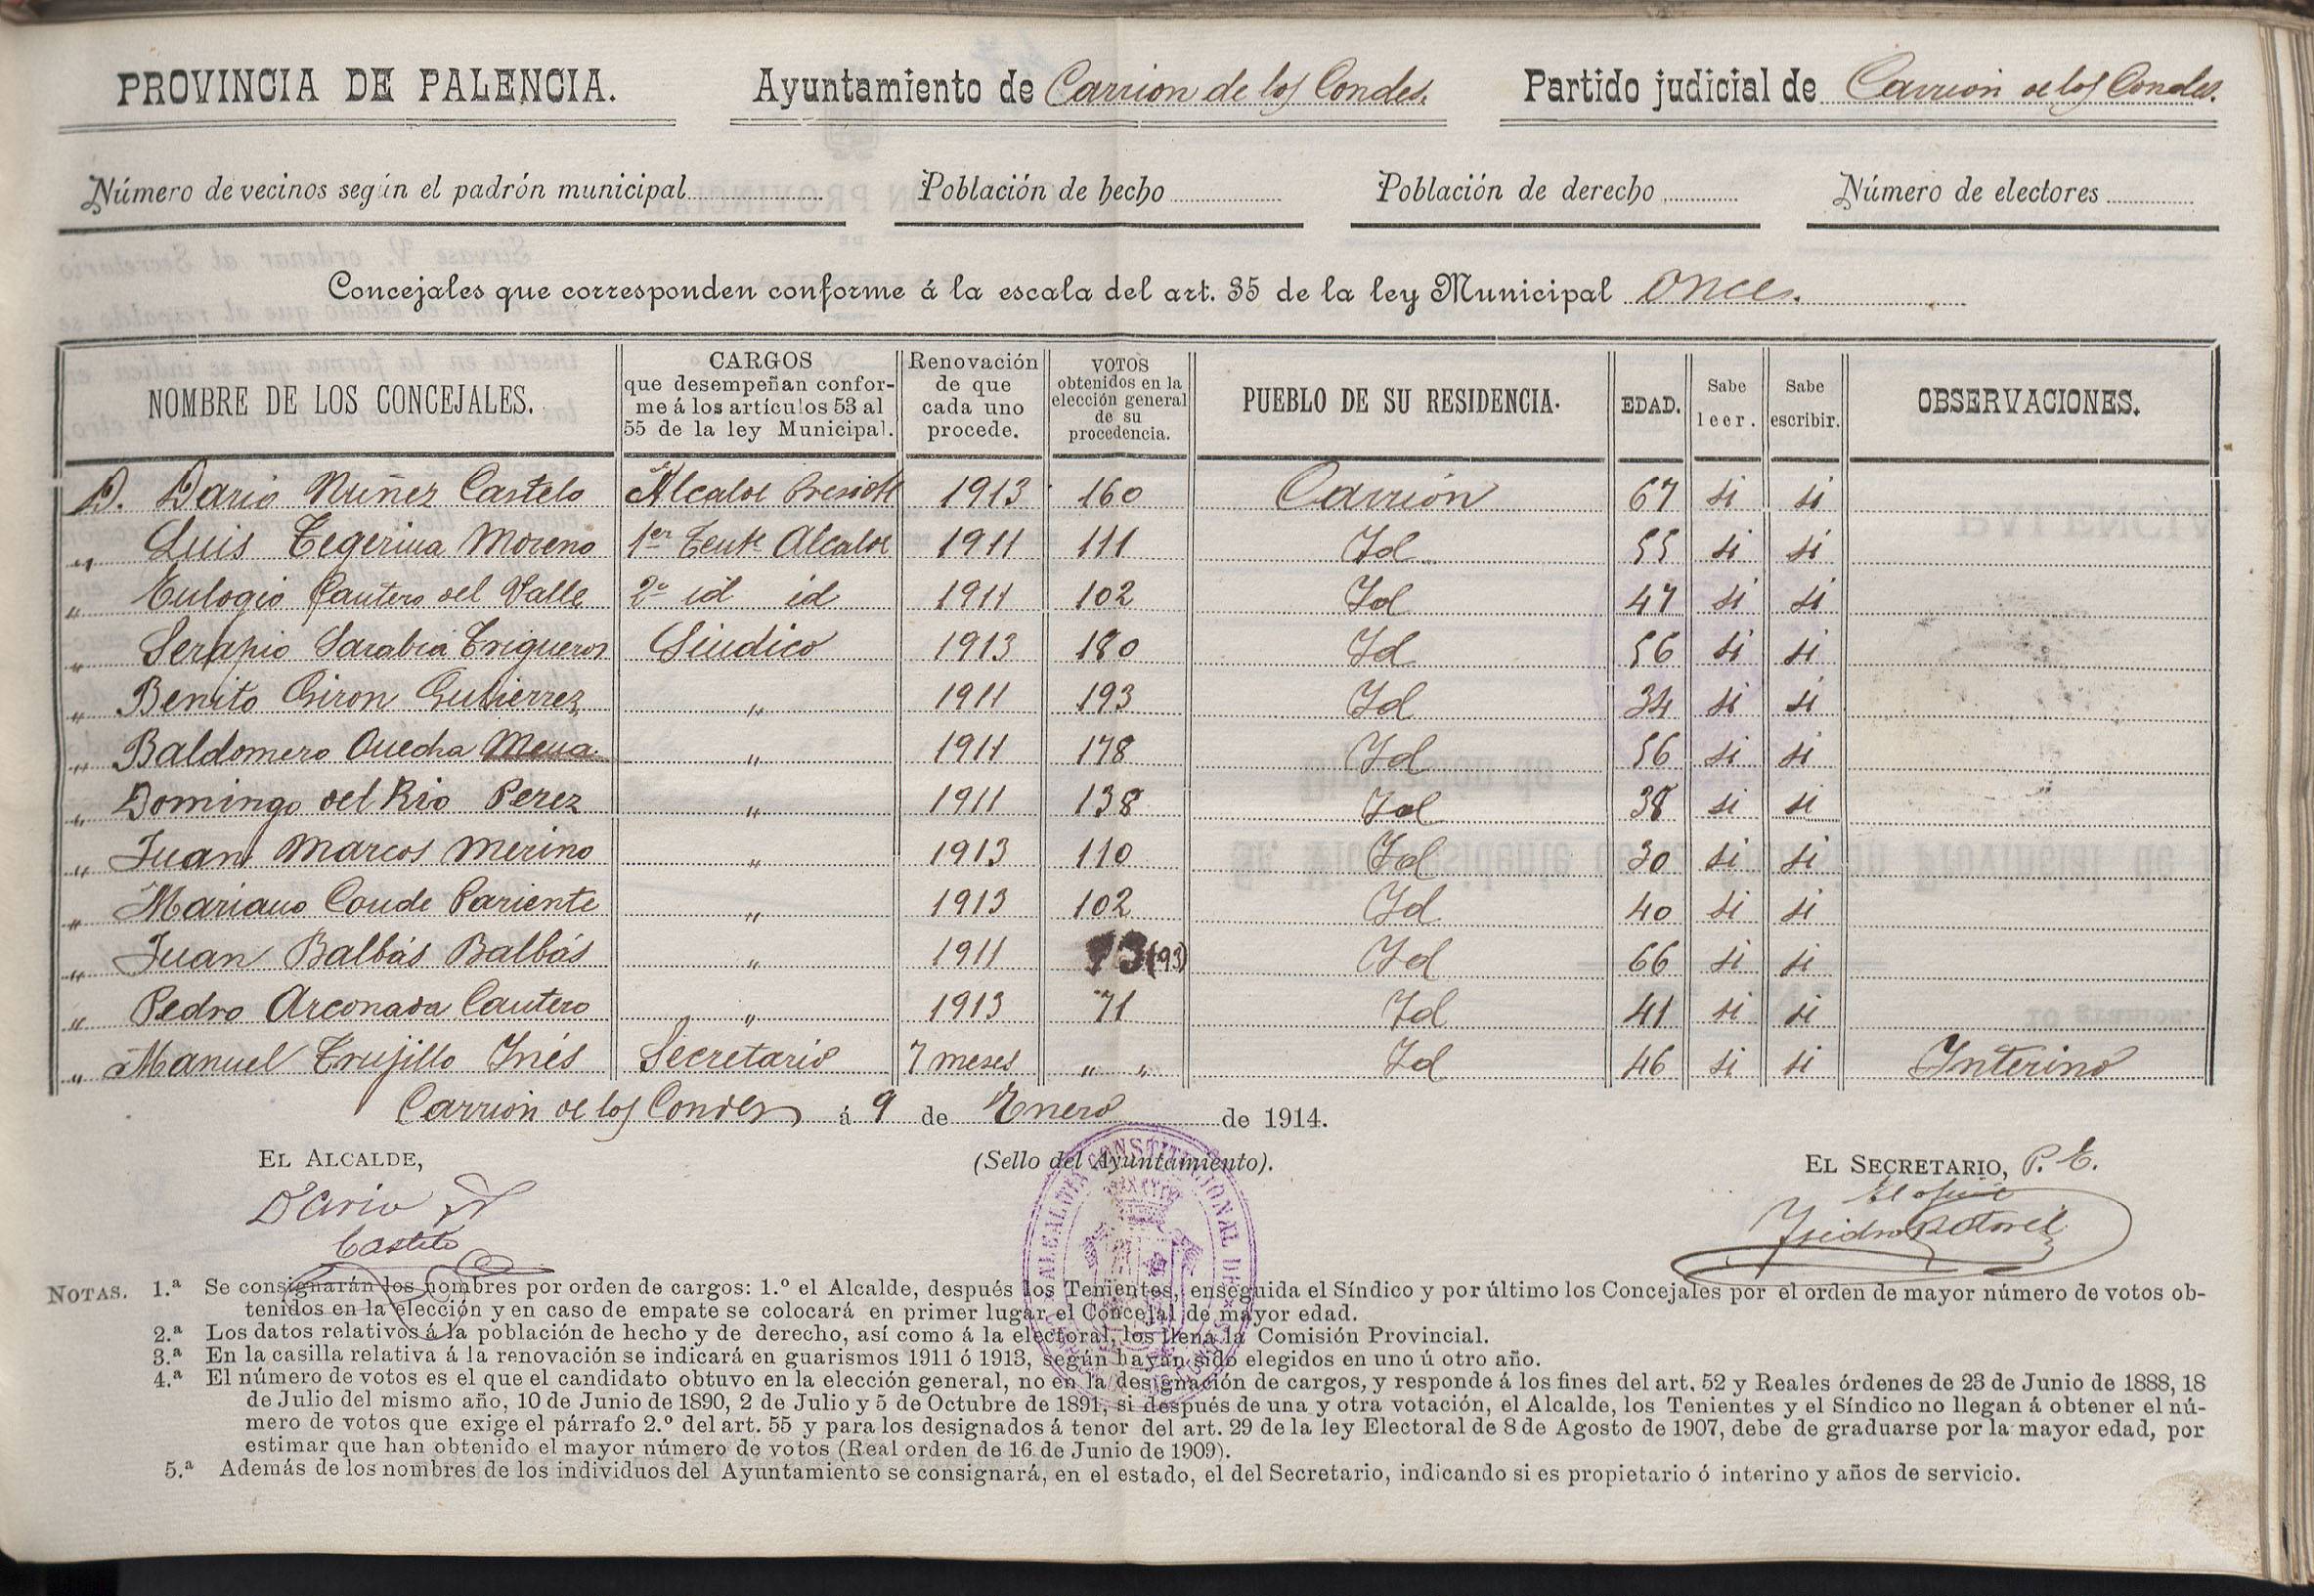 PROVINCIA DE PALENCIA. Ayuntamiento de Carrion de los Condes. Partido judicial de Carrion de los Condes.
Número de vecinos según el padrón municipal Población de hecho Población de derecho Número de electores
Concejales que corresponden conforme á la escala del art. 35 de la ley Municipal once.
NOMBRE DE LOS CONCEJALES. CARGOS que desempeñan conforme á los artículos 53 al 55 de la ley Municipal. Renovación de que cada uno procede. VOTOS obtenidos en la elección general de su procedencia. PUEBLO DE SU RESIDENCIA. EDAD. Sabe leer. Sabe escribir. OBSERVACIONES.
D. Dario Nuñez Castelo Alcalde Presidte 1913 160 Carrión 67 si si
„ Luis Tegerina Moreno 1er Tente Alcalde 1911 111 Id 55 si si
„ Eulogio Cantero del Valle 2º id id 1911 102 Id 47 si si
„ Serapio Sarabia Trigueros Sindico 1913 180 Id 56 si si
„ Benito Giron Gutierrez „ 1911 193 Id 34 si si
„ Baldomero Onecha Mena „ 1911 178 Id 56 si si
„ Domingo del Rio Perez „ 1911 138 Id 38 si si
„ Juan Marcos Merino „ 1913 110 Id 30 si si
„ Mariano Conde Pariente „ 1913 102 Id 40 si si
„ Juan Balbás Balbás „ 1911 93 (93) Id 66 si si
„ Pedro Arconada Cantero „ 1913 71 Id 41 si si
„ Manuel Trujillo Inés Secretario 7 meses „ „ Id 46 si si Interino
Carrión de los Condes á 9 de Enero de 1914.
EL ALCALDE, (Sello del Ayuntamiento). EL SECRETARIO, P. E.
Dario N. El oficial
Castelo Isidro
ALCALDIA CONSTITUCIONAL DE
NOTAS. 1.ª Se consignarán los nombres por orden de cargos: 1.º el Alcalde, después los Tenientes, enseguida el Síndico y por último los Concejales por el orden de mayor número de votos ob-
tenidos en la elección y en caso de empate se colocará en primer lugar el Concejal de mayor edad.
2.ª Los datos relativos á la población de hecho y de derecho, así como á la electoral, los llena la Comisión Provincial.
3.ª En la casilla relativa á la renovación se indicará en guarismos 1911 ó 1913, según hayan sido elegidos en uno ú otro año.
4.ª El número de votos es el que el candidato obtuvo en la elección general, no en la designación de cargos, y responde á los fines del art. 52 y Reales órdenes de 23 de Junio de 1888, 18
de Julio del mismo año, 10 de Junio de 1890, 2 de Julio y 5 de Octubre de 1891, si después de una y otra votación, el Alcalde, los Tenientes y el Síndico no llegan á obtener el nú-
mero de votos que exige el párrafo 2.º del art. 55 y para los designados á tenor del art. 29 de la ley Electoral de 8 de Agosto de 1907, debe de graduarse por la mayor edad, por
estimar que han obtenido el mayor número de votos (Real orden de 16 de Junio de 1909).
5.ª Además de los nombres de los individuos del Ayuntamiento se consignará, en el estado, el del Secretario, indicando si es propietario ó interino y años de servicio.